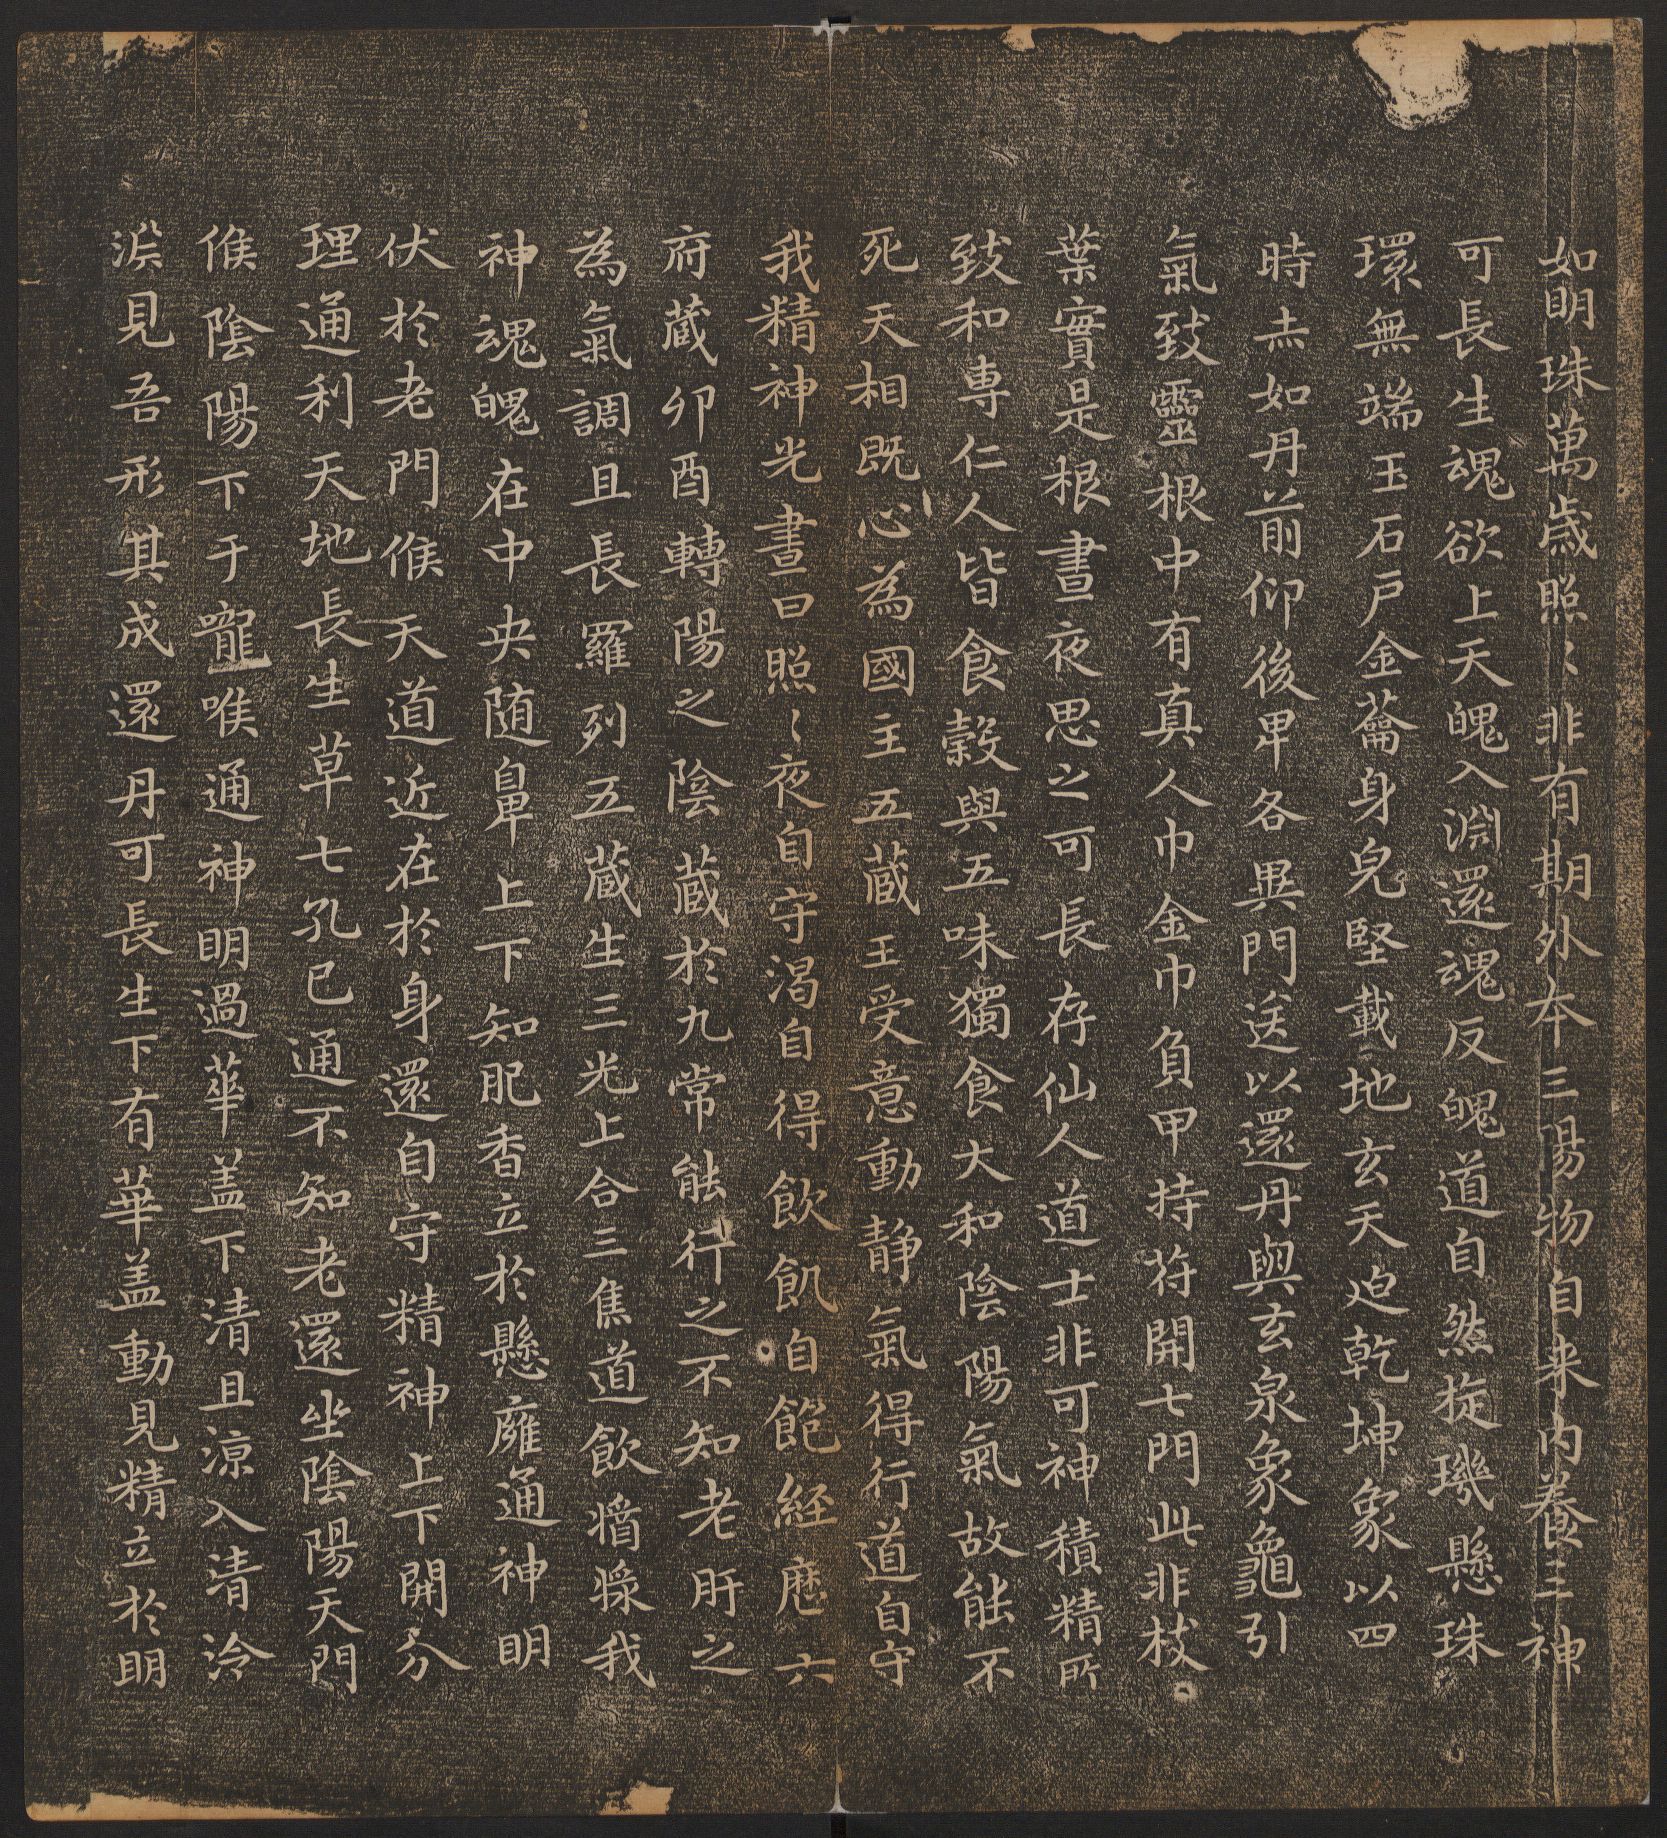 如明珠萬歲照〻非有期外本三陽物自来内養三神
可長生魂欲上天魄入淵還魂反魄道自然挻璣懸珠
環無端玉石戶金籥身皃堅載地玄天迫乾坤象以四
時赤如丹前仰後卑各異門送以還丹與玄泉象龜引
氣致靈根中有真人巾金巾負甲持符開七門此非枝
葉實是根晝夜思之可長存仙人道士非可神積精所
致和専仁人皆食穀與五味獨食大和陰陽氣故能不
死天相既心為國主五蔵王受意動静氣得行道自守
我精神光晝日照〻夜自守渴自得飲飢自飽経歴六
府蔵卯酉轉陽之陰蔵於九常能行之不知老肝之
為氣調且長羅列五蔵生三光上合三焦道飲漿我
神魂魄在中央随鼻上下知肥香立於懸廱通神明
伏於老門候天道近在於身還自守精神上下開分
理通利天地長生草七孔已通不知老還坐陰陽天門
候陰陽下于嚨喉通神明過華盖下清且涼入清泠
淵見吾形其成還丹可長生下有華盖動見精立於明